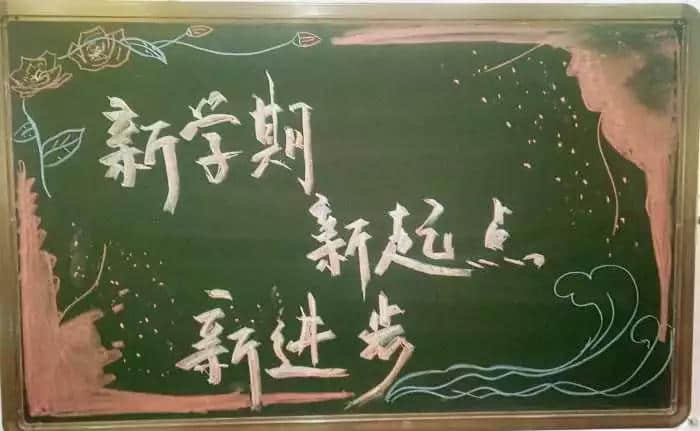 新学期
新起点
新进步